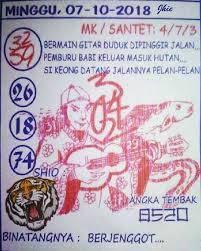 MINGGU, 07-10-2018 Jhie
MK / SANTET: 4/7/3
BERMAIN GITAR DUDUK DIPINGGIR JALAN,,,,
PEMBURU BABI KELUAR MASUK HUTAN,,,,
SI KEONG DATANG JALANNYA PELAN-PELAN
26
18
74
SHIO :
ANGKA TEMBAK
8520
BINATANGNYA : BERJENGGOT....